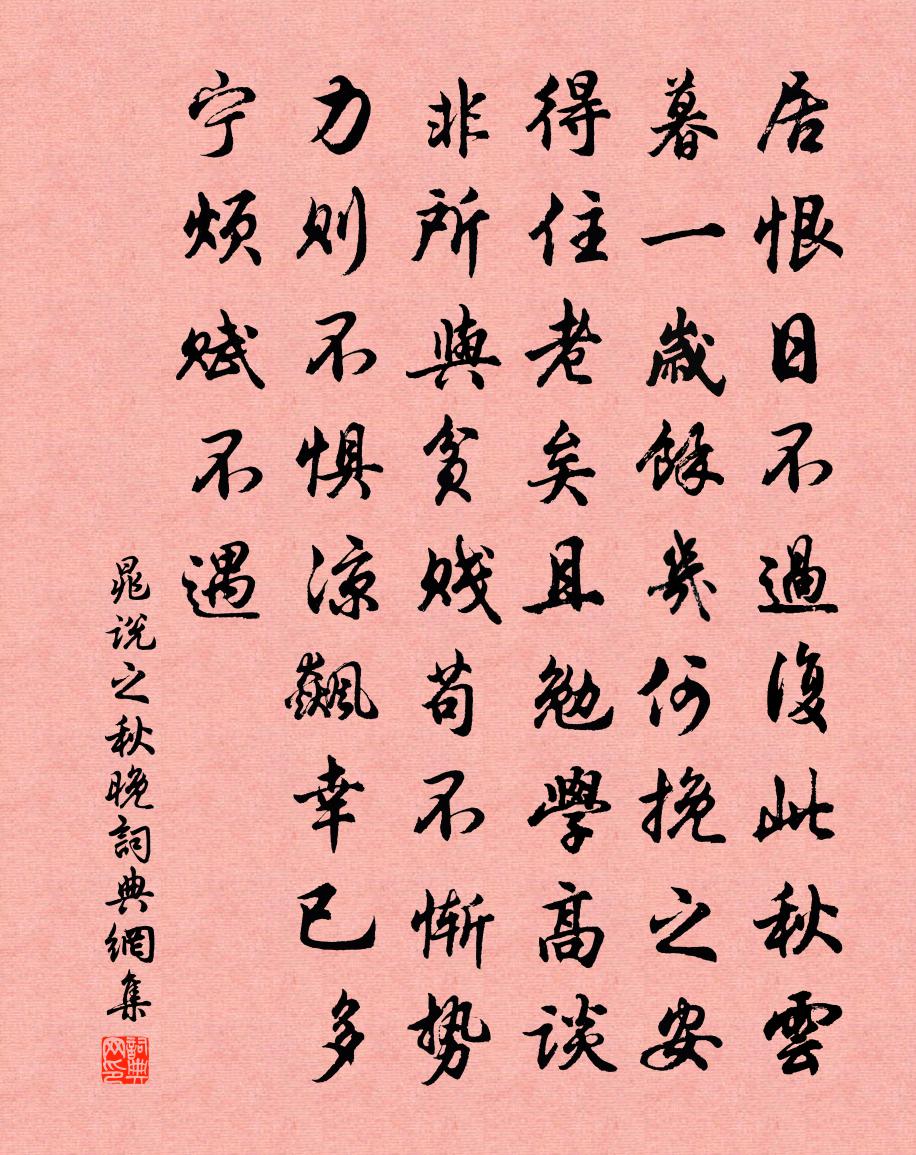 居恨日不過復此秋雲
暮一歲餘幾何挽之安
得住老矣且勉學高談
非所與貧賤苟不慚勢
力則不惧涼飆幸已多
宁煩賦不遇
晁说之秋晚詞典網集
詞典网印